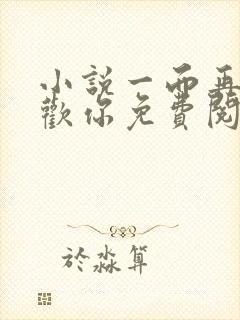 小說一而再
歡你免費閱
於淼算